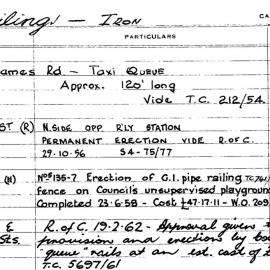 ilings — IRON
CA
PARTICULARS
ames Rd — Taxi Queue
Approx. 120' long
Vide T.C. 212/54.
ST (R)
N.SIDE OPP R'LY STATION
PERMANENT ERECTION VIDE R.OF C.
29-10-56 54-75/77
(N)
Nos 135-7 Erection of G.I. pipe railing
fence on Council's unsupervised playground
Completed 23-6-58 - Cost £47-17-11 - W.O. 209
E
Sts.
R. of C. 19.2.62 - Approval given
provision and erection by
"queue" rails at an est. cost of
T.C. 5697/61